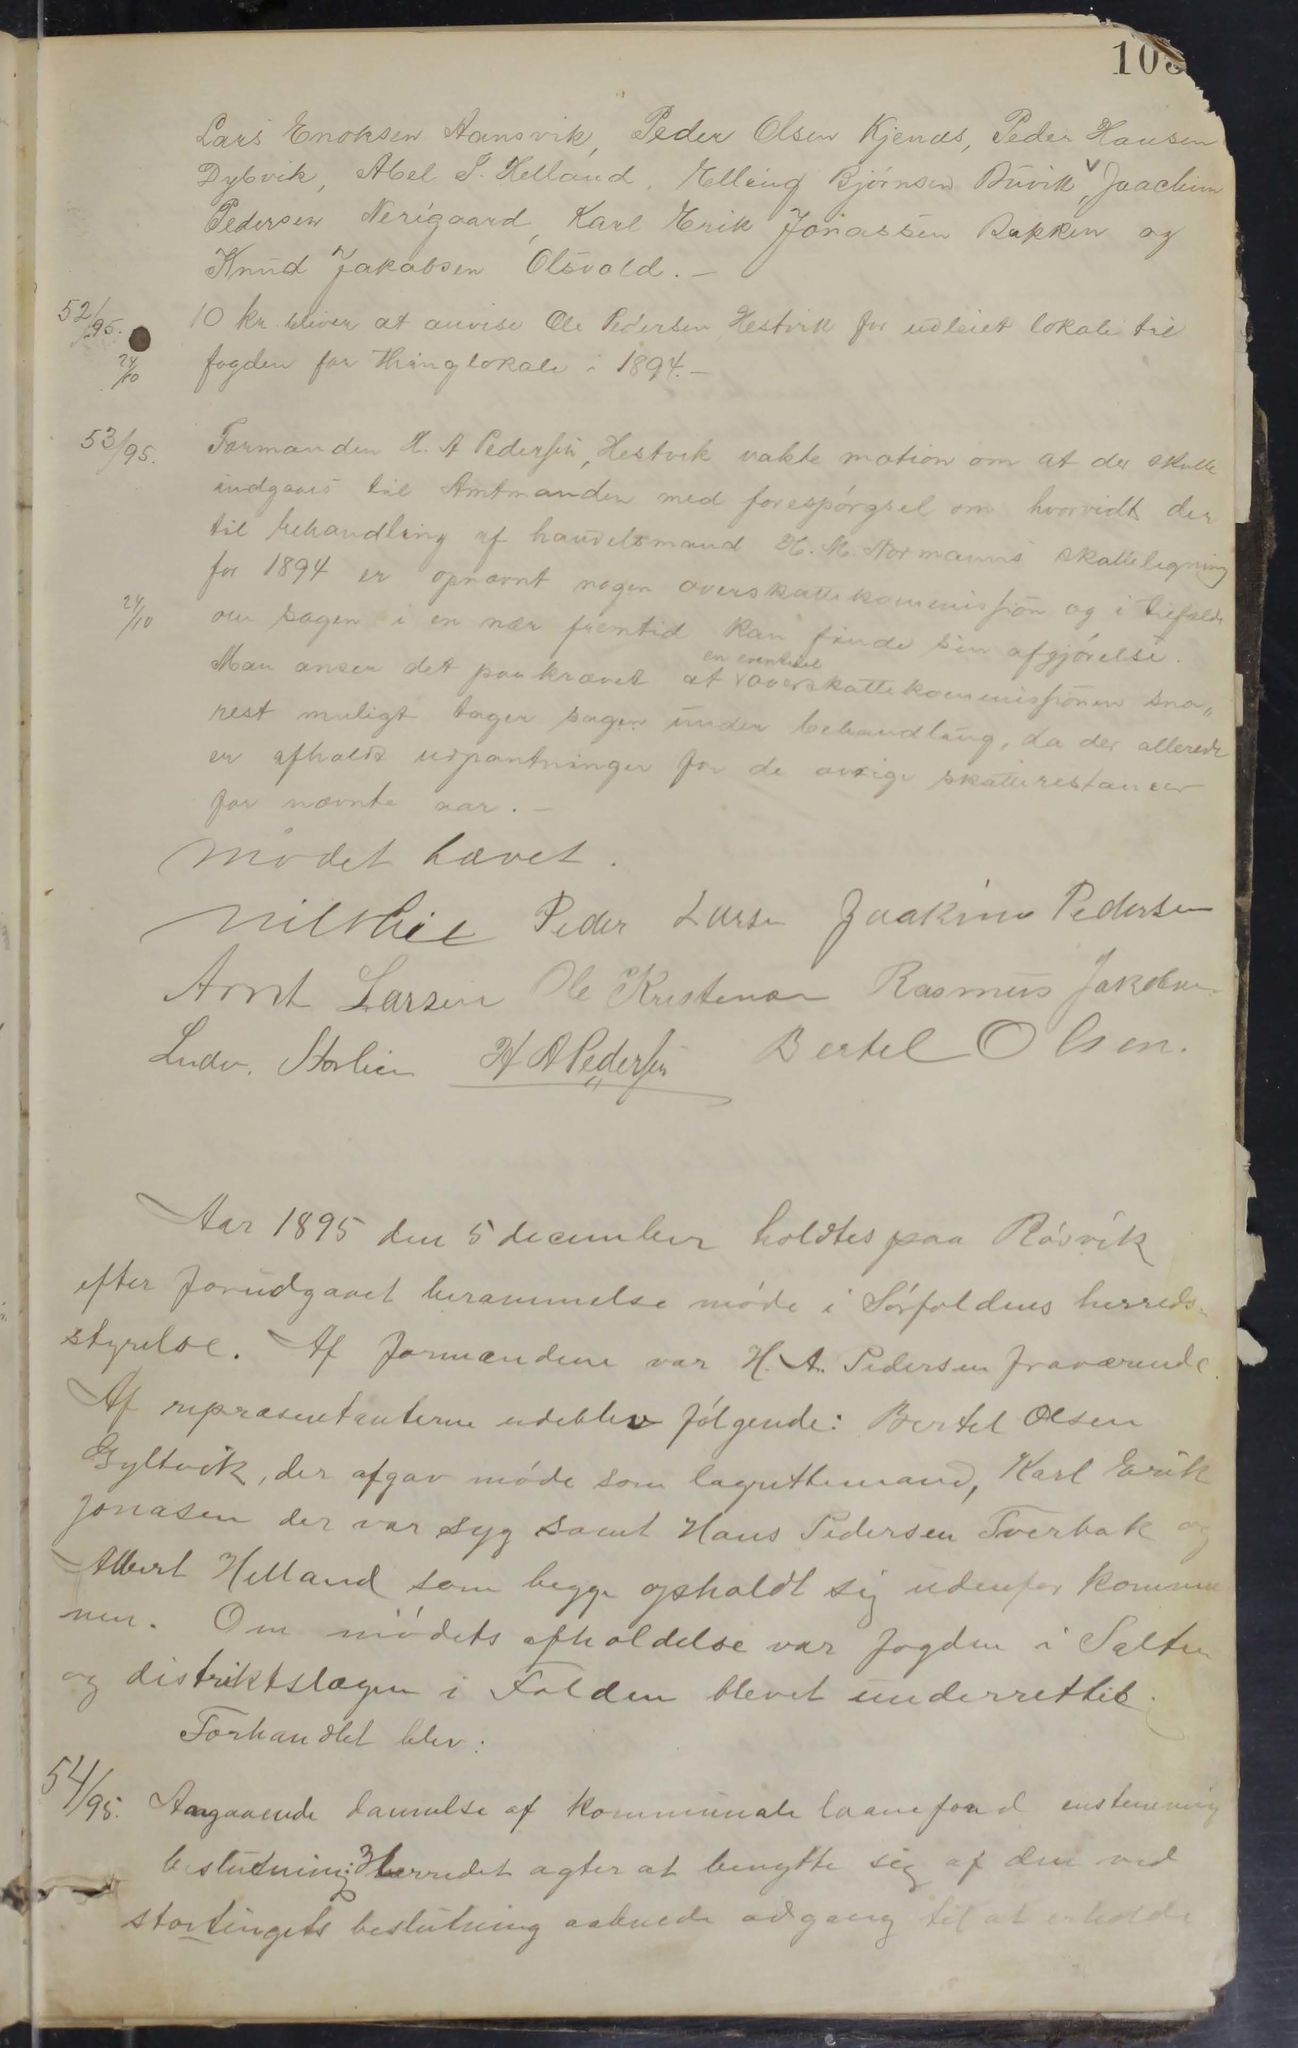 103
Lars Enoksen Aansvik, Peder Olsen Kjenæs, Peder Hansen
Dybvik, Abel S. Helland, Elling Bjørnsen Buvik, Joachim
Pedersen Nerigaard, Karl Erik Jonassen Bakken og
Knud Jakobsen Olsvold.—
52/95. 10 kr. bliver at anvise Ole Pedersen Hestvik for udleiet lokale til
24/10 fogden for thinglokale i 1894.—
53/95. Formanden H. A Pedersen, Hestvik vakte motion om at der skulle
indgaaes til Amtmanden med forespørgsel om hvorvidt der
til behandling af handelsmand H. M. Normanns skatteligning
for 1894 er opnævnt nogen overskattekommission og i tilfælde
24/10 om sagen i en nær fremtid kan finde sin afgjørelse.
Man anser det paakrævet at en eventuel overskattekommissionen sna„
rest muligt tager sagen under behandling, da der allerede
er afholdt udpantninger for de øvrige skatterestancer
for nævnte aar.—
Mødet hævet.
Peder Larsen Joakim Pedersen
Arnt Larsen Ole Kristensen Rasmus Jakobsen
Ludv. Storlien H A Pedersen Bertel Olsen.
Aar 1895 den 5 december holdtes paa Røsvik
efter forudgaaet berammelse møde i Sørfoldens herreds-
styrelse. Af formændene var H. A. Pedersen fraværende.
Af repræsentanterne udeblev følgende: Bertel Olsen
Gyltvik, der afgav møde som lagrettemand, Karl Erik
Jonasen der var syg samt Hans Pedersen Tverbak og
Albert Helland som begge opholdt sig udenfor kommu
nen. Om mødets afholdelse var fogden i Salten
og distriktslægen i Folden blevet underrettet.
Forhandlet blev:
54/95. Angaaende dannelse af kommunale laanefond enstemmig
beslutning: Herredet agter at benytte sig af den ved
stortingets beslutning aabnede adgang til at erholde